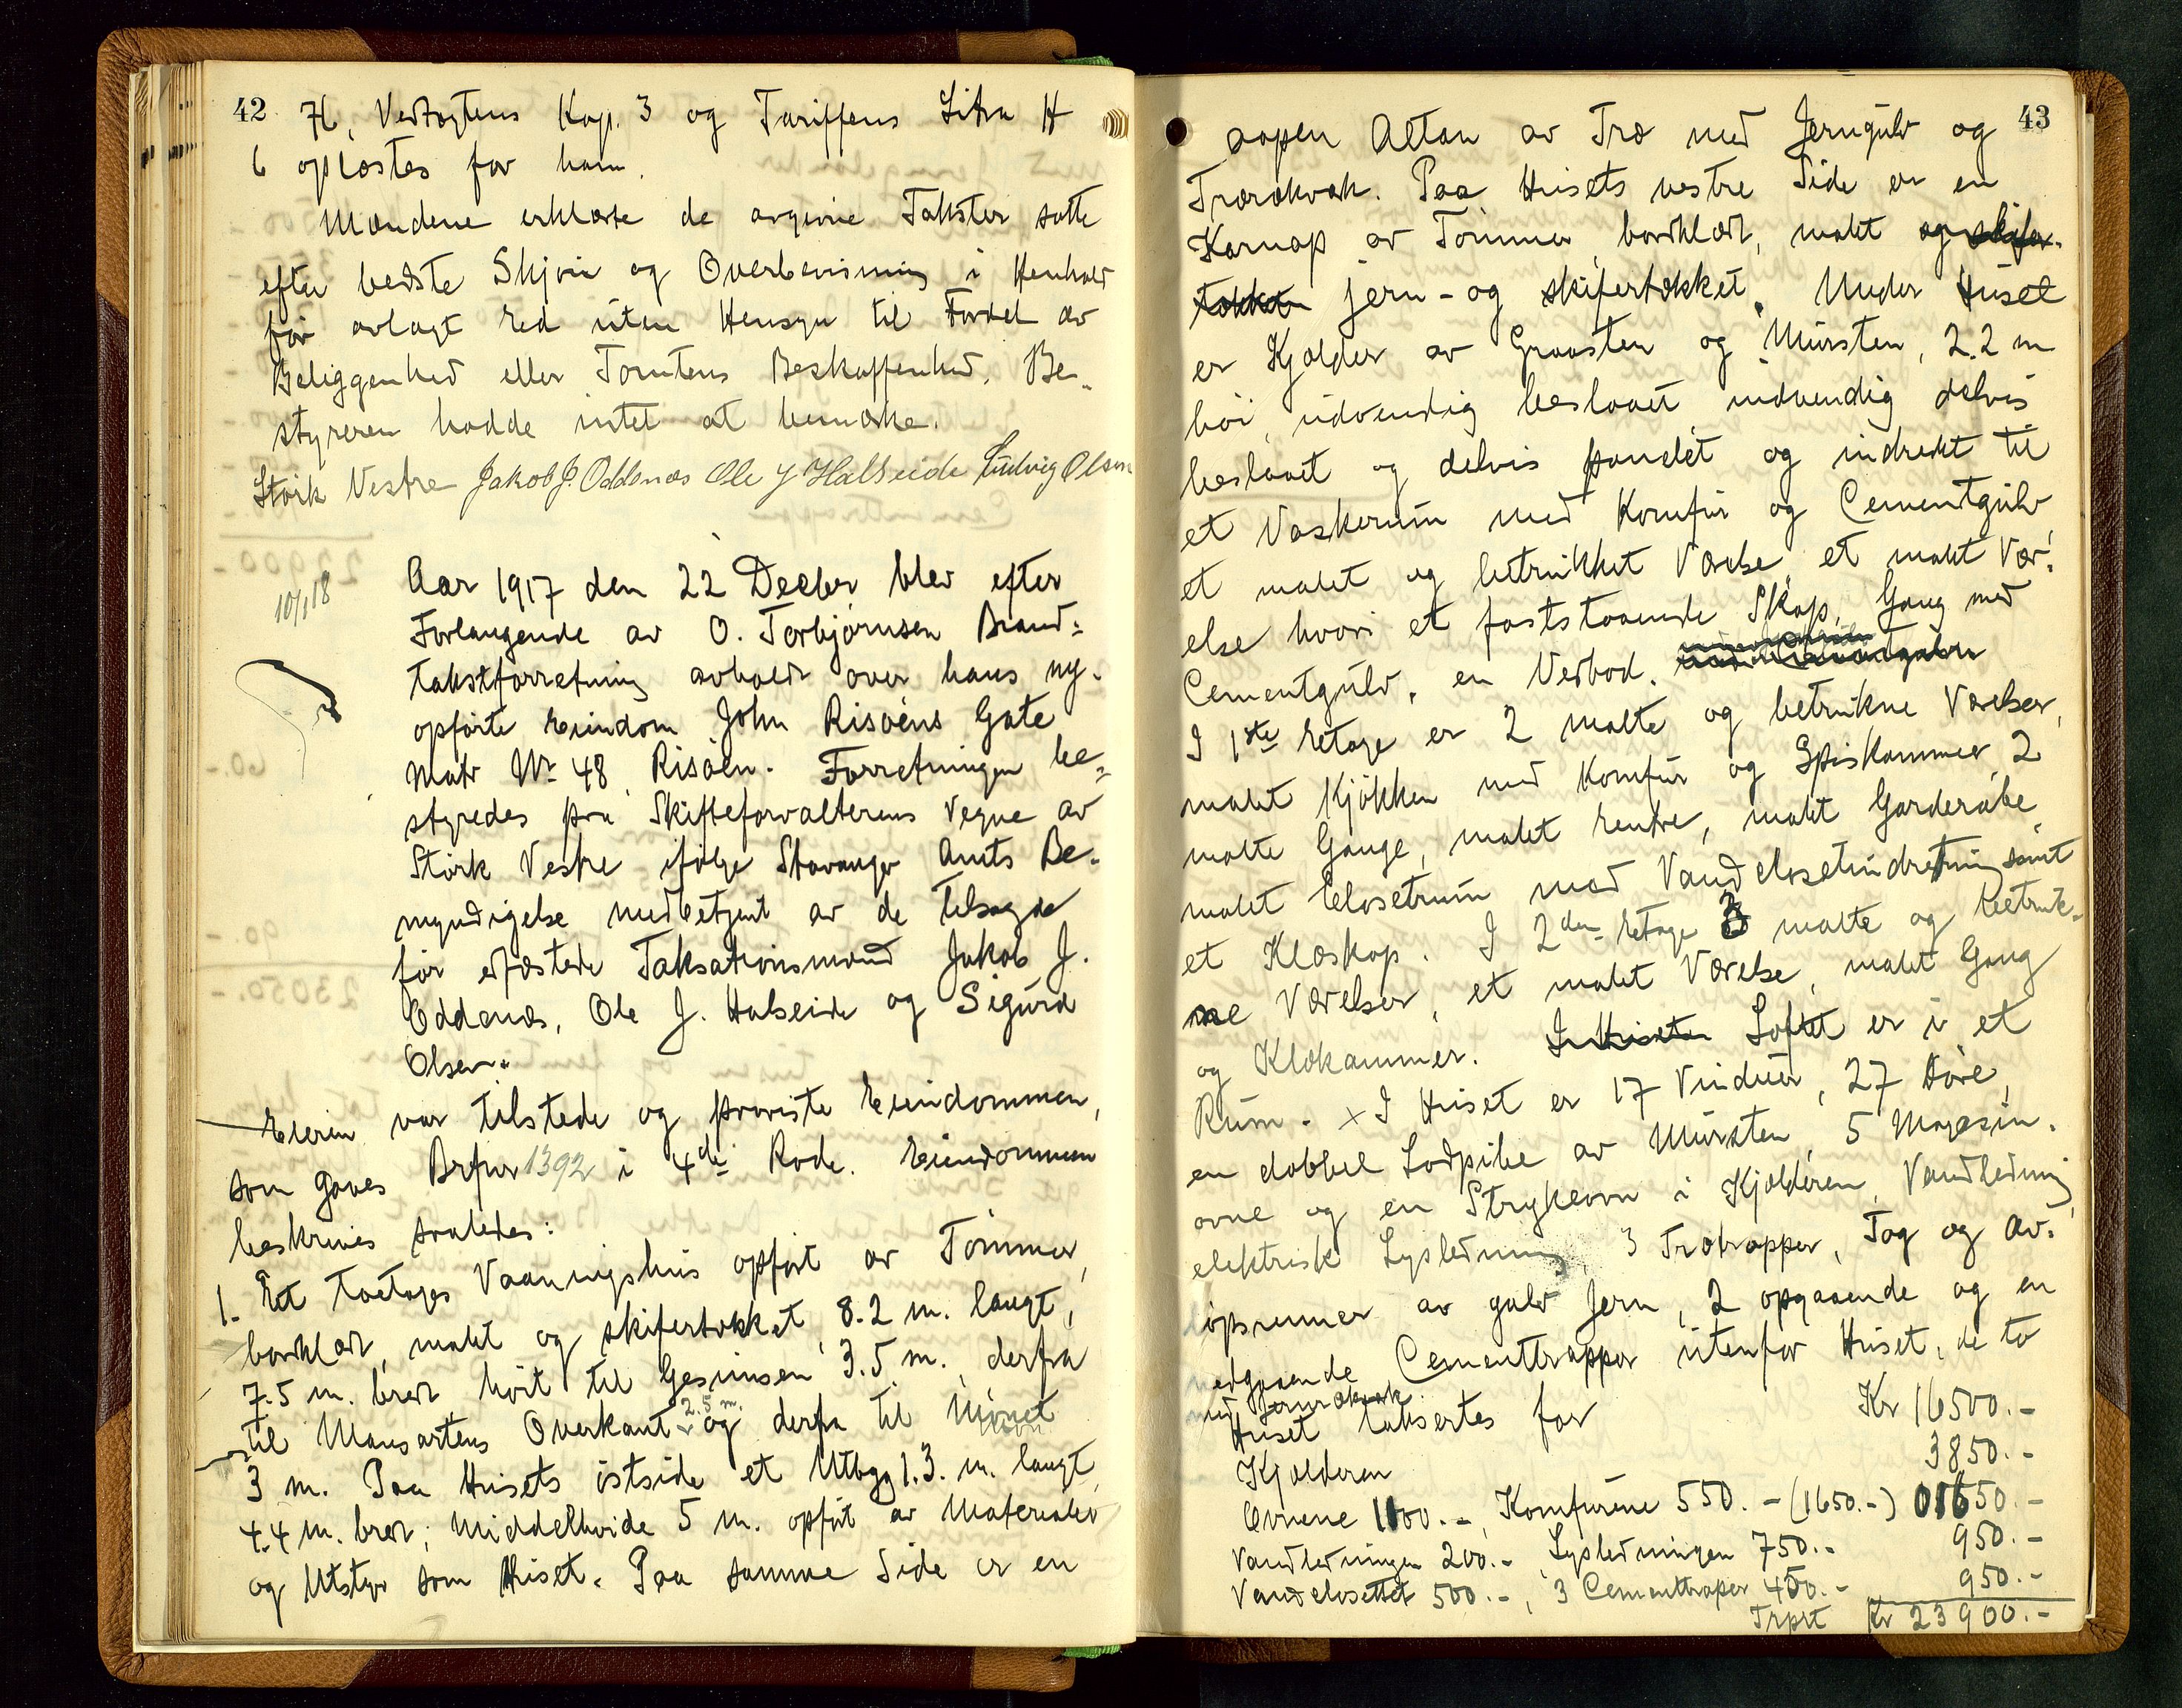 42
76, Vedtægtens Kap. 3 og Tariffens Litra H
6 oplæstes for ham.
Mændene erklærte de avgivne Takster satte
efter bedste Skjøn og Overbevisning i Henhold
før avlagt Ed uten Hensyn til Fordel av
Beliggenhed eller Tomtens Beskaffenhed. Be-
styreren hadde intet at bemærke.
Størk Vestre Jakob J. Oddenæs Ole J Halseide Ludvig Olsen
10/1 18
Aar 1917 den 22 Decbr blev efter
Forlangende av O. Torbjørnsen Brand-
takstforretning avholdt over hans ny-
opførte Eiendom John Risøens Gate
Matr Nr 48, Risøen. Forretningen be-
styredes paa Skifteforvalterens Vegne av
Størk Vestre ifølge Stavanger Amts Be-
myndigelse medbetjent av de tilsagde
før edfæstede Taksationsmænd Jakob J.
Oddenæs, Ole J. Halseide og Sigurd
Olsen.
Eieren var tilstede og paaviste Eiendommen,
som gaves Brfnr 1392 i 4de Rode. Eiendommen
beskrives saaledes:
1. Et toetages Vaaningshus opført av Tømmer,
bordklædt, malt og skifertækket, 8.2 m. langt,
7.5 m. bredt, høit til Gesimsen 3.5 m., derfra
til Mansartens Overkant 2.5 m. og derfra til Mønet
3 m. Paa Husets østside et Utbygg 1.3. m. langt,
4.4 m. bredt; Middelhøide 5 m. opført av Materialer
og Utstyr som Huset. Paa samme Side er en
43
aapen Altan av Træ med Jerngulv og
Trærækværk. Paa Husets vestre Side er en
Karnap av Tømmer, bordklædt, malet og skifer-
tækket jern- og skifertækket. Under Huset
er Kjælder av Graasten og Mursten, 2.2 m
høi, udvendig beslaaet indvendig delvis
beslaaet og delvis panelet og indredt til
et Vaskerum med Komfur og Cementgulv
et malet og betrukket Værelse et malet Vær-
else hvori et faststaaende Skap, Gang med
Cementgulv, en Vedbod.
I 1ste Etage er 2 malte og betrukne Værelser,
malet Kjøkken med Komfur og Spiskammer, 2
malte Gange, malet Entre, malet Garderobe,
malet Closetrum med Vandclosetindretning samt
et Klæskap. I 2den Etage 3 malte og betruk-
ne Værelser, et malet Værelse, malet Gang
og Klækammer. I Huset Loftet er i et
Rum. x I Huset er 17 Vinduer, 27 Døre,
en dobbel Lodpibe av Mursten, 5 Magasin-
ovne og en Strykeovn i Kjælderen, Vandledning,
elektrisk Lysledning, 3 Trætrapper, Tag og Av-
løpsrenner av galv Jern, 2 opgaaende og en
nedgaaende Cementtrapper utenfor Huset, de to
med Jernrækværk.
Huset takseres for Kr 16500.-
Kjælderen 3850.-
Ovnene 1100.-, Komfurene 550.- (1650.-) 01650.-
Vandledningen 200.-, Lysledningen 750.- 950.-
Vandclosettet 500.-, 3 Cementtraper 450.- 950.-
Trpt Kr 23900.-